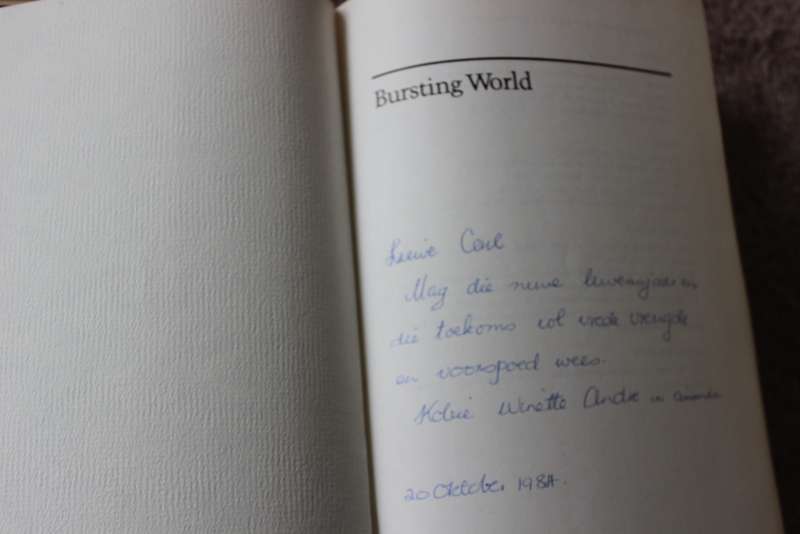 Bursting World
Liewe Carl
Mag die nuwe lewensjaar en
die toekoms vol vrede vreugde
en voorspoed wees.
Kobie Winette Andre en
20 Oktober 1984.